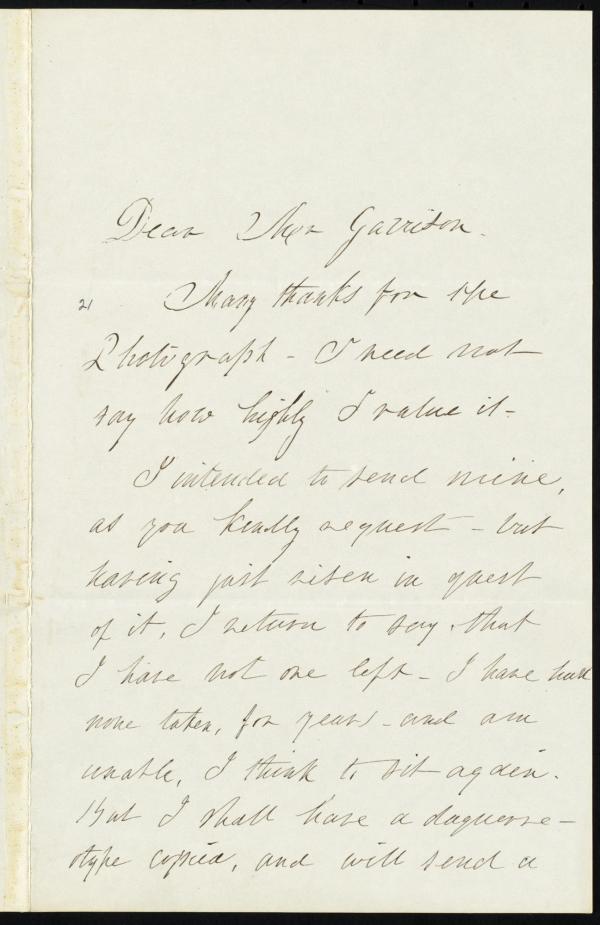 Dear Mrs Garrison.
21
Many thanks for the
Photograph - I need not
say how highly I value it -
I intended to send mine,
as you kindly request - but
having just risen in quest
of it, I return to say, that
I have not one left - I have had
none taken, for years - and am
unable, I think to sit again.
But I shall have a daguerre-
otype copied, and will send a